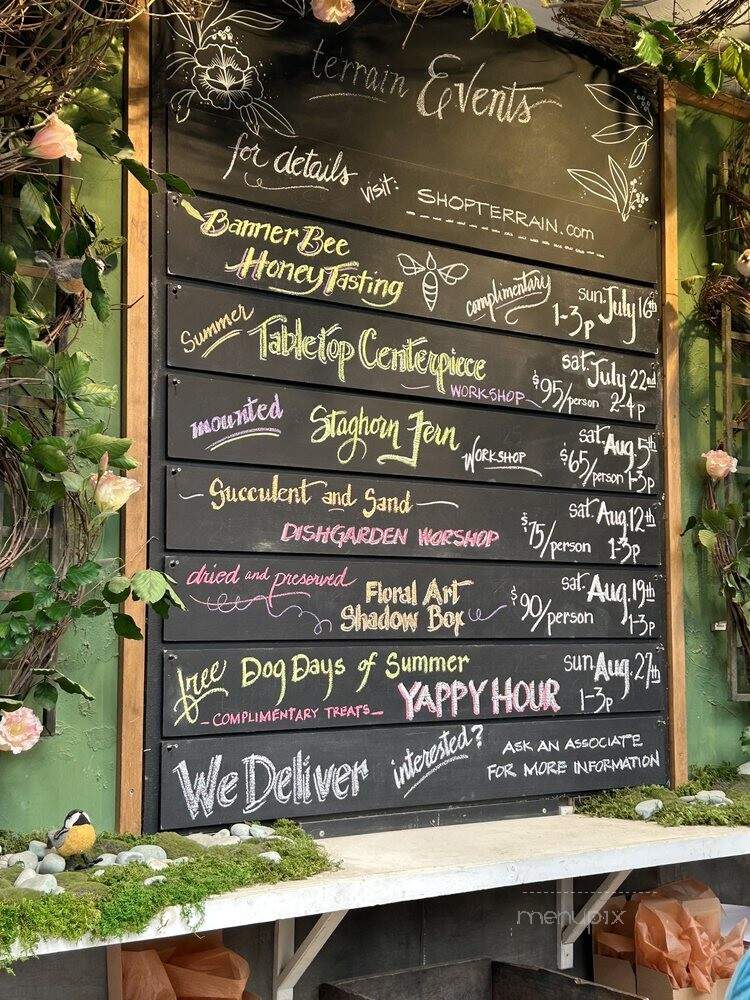 terrain Events
for details visit: SHOPTERRAIN.com
Banner Bee
Honey Tasting
complimentary
sun. July 16th
1-3p
Summer Tabletop Centerpiece
WORKSHOP
sat. July 22nd
$95/person 2-4p
mounted Staghorn Fern
WORKSHOP
sat. Aug. 5th
$65/person 1-3p
Succulent and Sand
DISHGARDEN WORSHOP
sat. Aug. 12th
$75/person 1-3p
dried and preserved
Floral Art
Shadow Box
sat. Aug. 19th
$90/person 1-3p
free Dog Days of Summer
- COMPLIMENTARY TREATS - YAPPY HOUR
sun. Aug. 27th
1-3p
We Deliver
interested?
ASK AN ASSOCIATE
FOR MORE INFORMATION
menupix